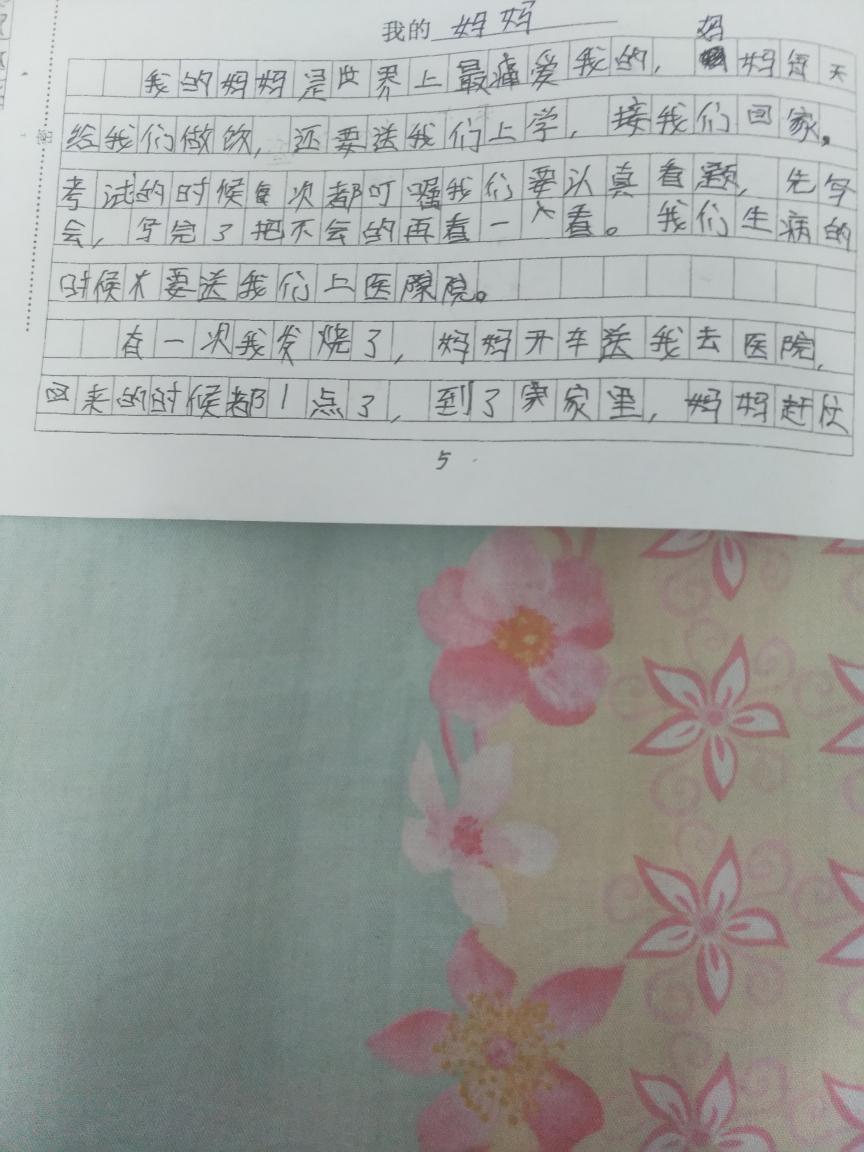 我的 妈妈
我的妈妈是世界上最痛爱我的，妈妈每天
给我们做饮，还要送我们上学，接我们回家。
考试的时候每次都叮嘱我们要认真看题，先写
会，写完了把不会的再看一看。我们生病的
时候 要送我们上医院。
有一次我发烧了，妈妈开车送我去医院，
回来的时候都1点了，到了家里，妈妈赶
5